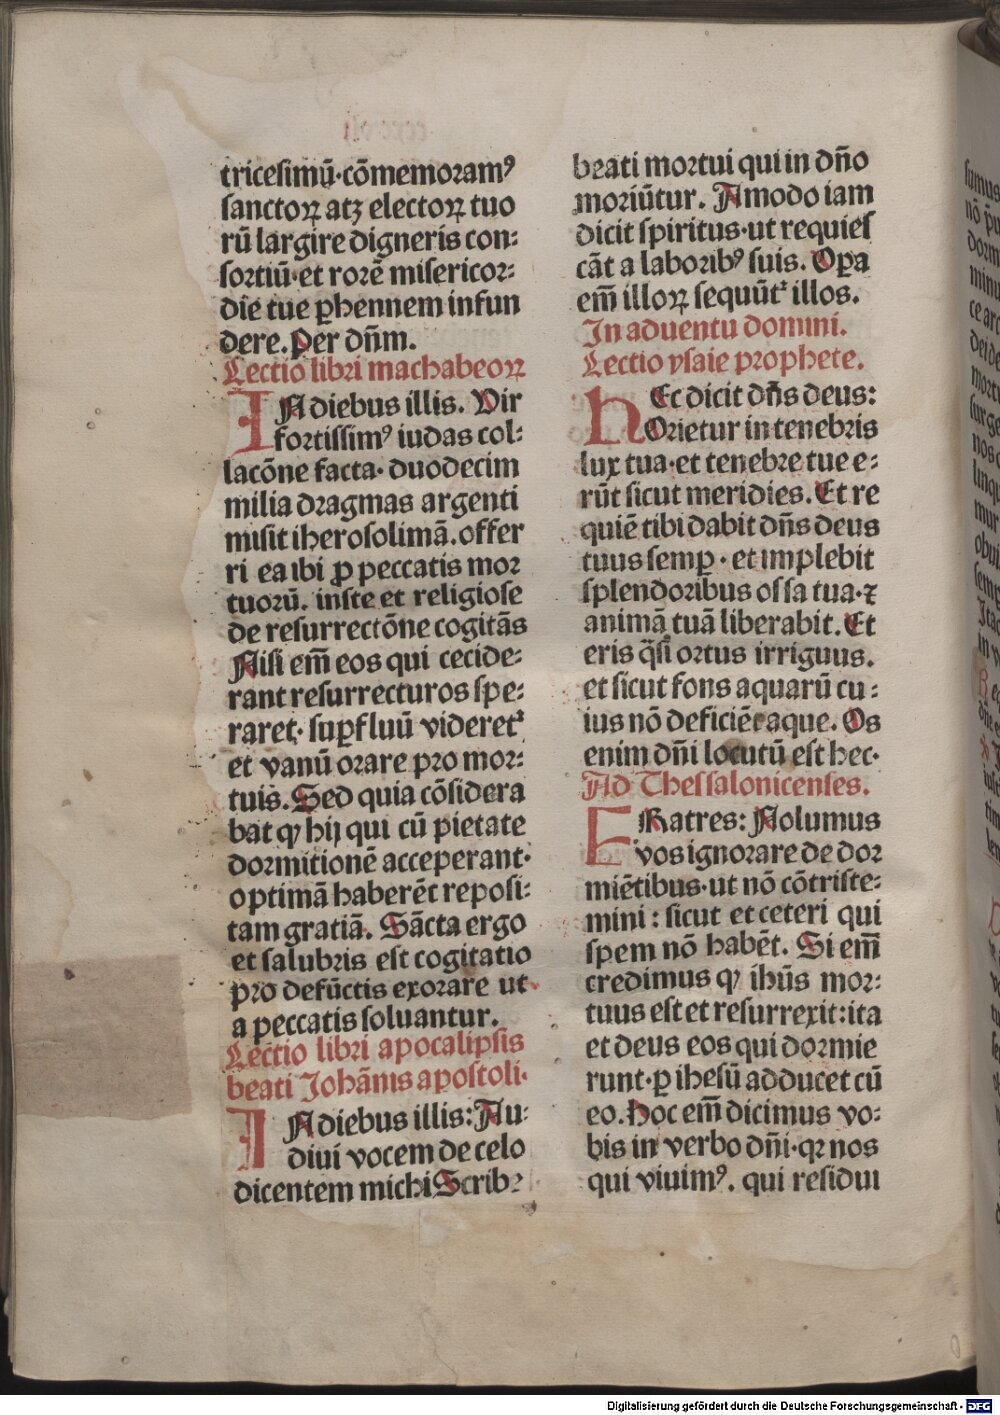 tricesimū·cōmemoramꝰ
sanctoꝝ atꝫ electoꝝ tuo
rū largire digneris con⸗
sortiū·et rorē misericor⸗
die tue ꝑhennem infun
dere. Per dn̄m.
Lectio libri machabeoꝝ
IN diebus illis. Vir
fortissimꝰ iudas col⸗
lacōne facta· duodecim
milia dragmas argenti
misit iherosolimā. offer
ri ea ibi ꝓ peccatis mor
tuorū. iuste et religiose
de resurrectōne cogitās
Nisi em̄ eos qui cecide⸗
rant resurrecturos spe⸗
raret· suꝑfluū videretᷣ
et vanū orare pro mor⸗
tuis. Sed quia cōsidera
bat ꝙ hij qui cū pietate
dormitionē acceperant·
optimā haberēt reposi⸗
tam gratiā. Sācta ergo
et salubris est cogitatio
pro defūctis exorare ut
a peccatis soluantur.
Lectio libri apocalipsis
beati Johānis apostoli·
IN diebus illis: Au⸗
diui vocem de celo
dicentem michi Scribe
beati mortui qui in dn̄o
moriūtur. Amodo iam
dicit spiritus·ut requies
cāt a laboribꝰ suis. Oꝑa
em̄ illoꝝ sequūtᷣ illos.
In aduentu domini.
Lectio ysaie prophete.
HEc dicit dn̄s deus:
Orietur in tenebris
lux tua·et tenebre tue e⸗
rūt sicut meridies. Et re
quiē tibi dabit dn̄s deus
tuus semꝑ· et implebit
splendoribus ossa tua·⁊
animā tuā liberabit. Et
eris q̄si ortus irriguus.
et sicut fons aquarū cu⸗
ius nō deficiēt aque. Os
enim dn̄i locutū est hec·
Ad Thessalonicenses.
FRatres: Nolumus
vos ignorare de dor
miētibus·ut nō cōtriste⸗
mini: sicut et ceteri qui
spem nō habēt. Si em̄
credimus ꝙ ihūs mor⸗
tuus est et resurrexit:ita
et deus eos qui dormie
runt·ꝑ ihesū adducet cū
eo. Hoc em̄ dicimus vo⸗
bis in verbo dn̄i·qꝛ nos
qui viuimꝰ. qui residui
Digitalisierung gefördert durch die Deutsche Forschungsgemeinschaft - DFG